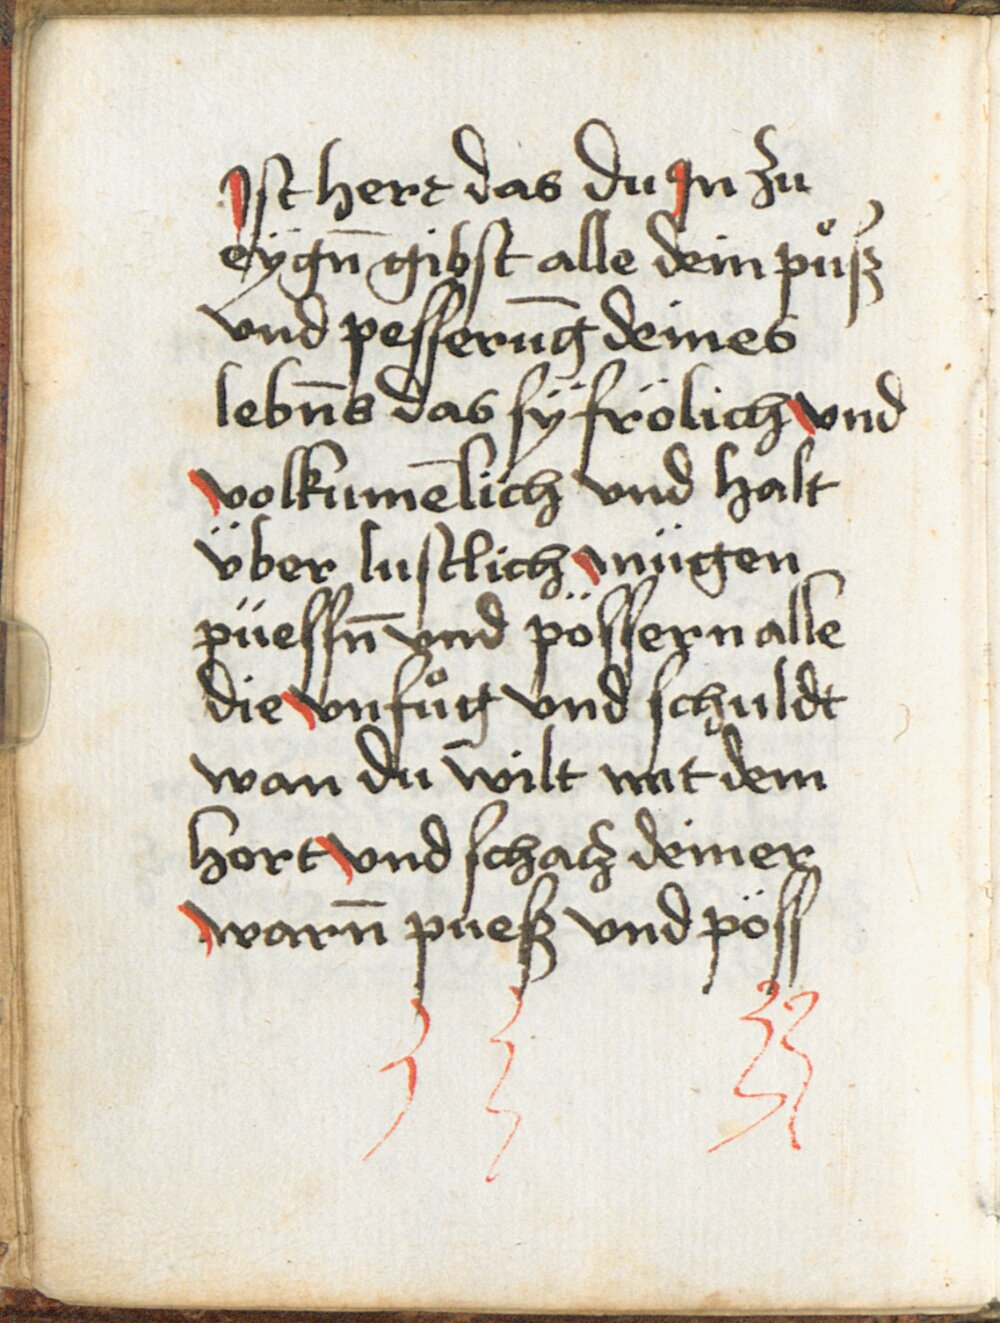 Ist herr das du In zu
eÿgn̄ gibst alle dein půß
vnd pesserūg deines
lebn̄s das sÿ frölich vnd
volkumēlich vnd halt
über lustlich mügen
püessn̄ vnd pössern alle
die vnfůg vnd schuldt
wan du wilt mit dem
hort vnd schacz deiner
warn̄ pueß vnd pöss